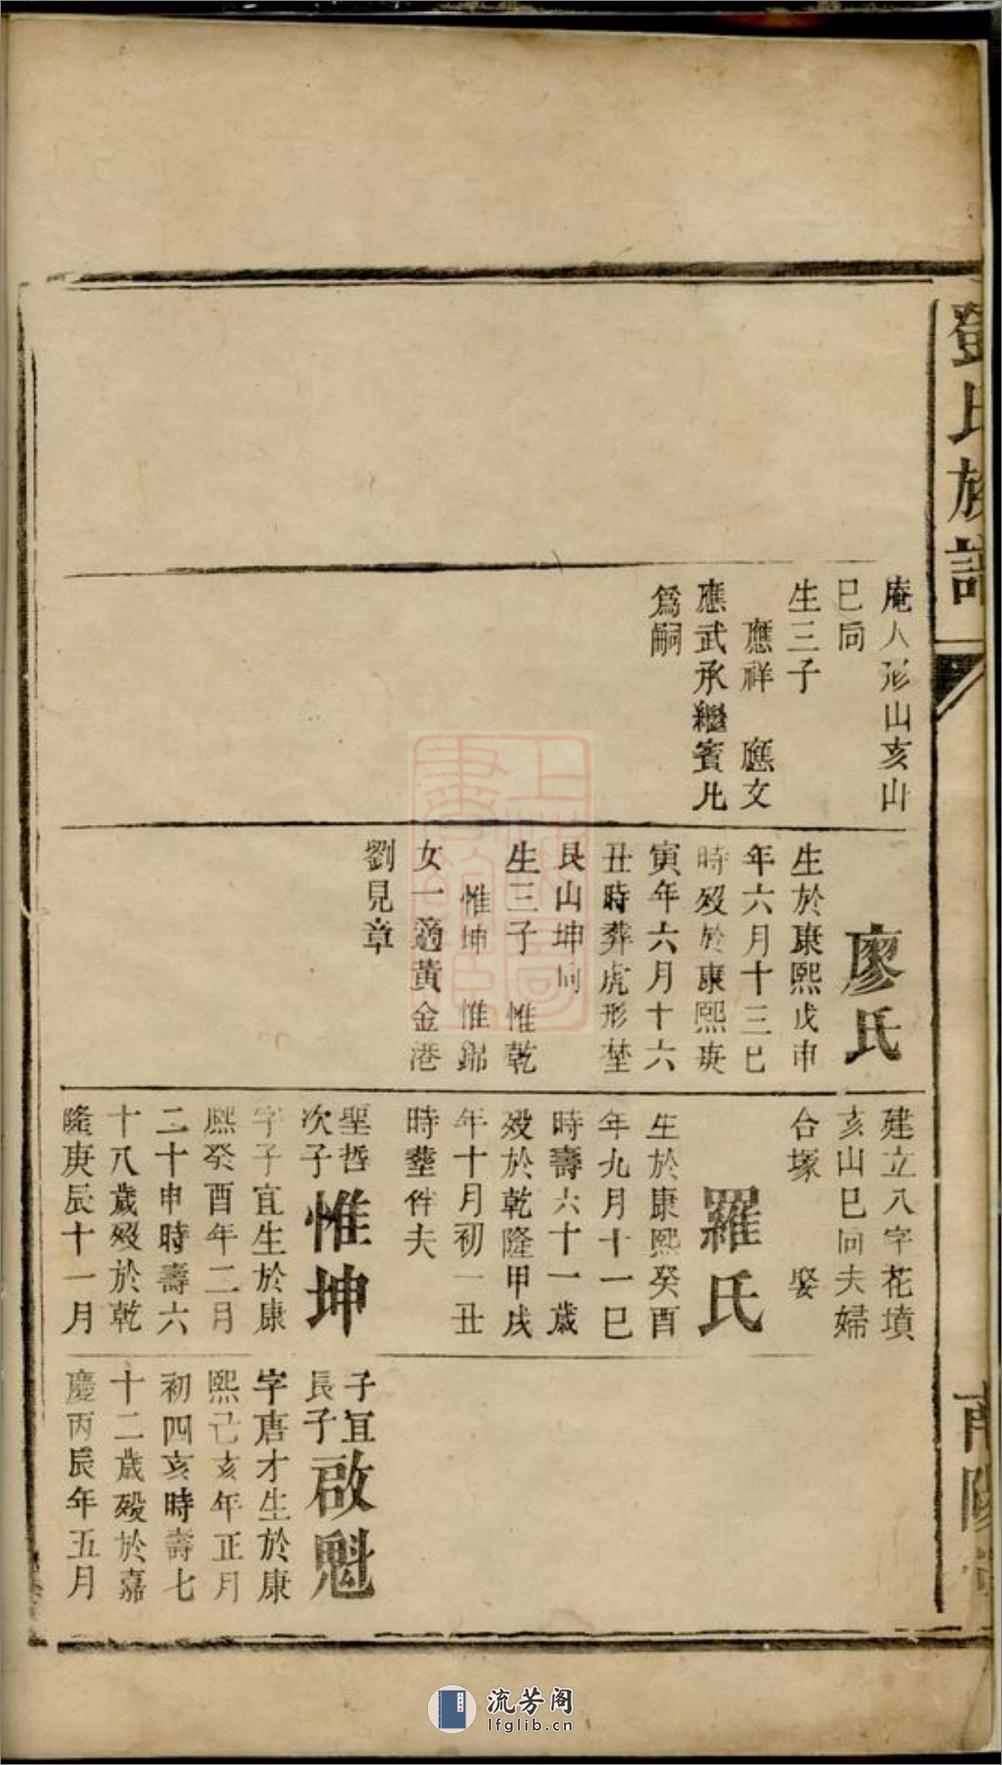 鄧氏族譜
南陽堂
庵人形山亥山
巳向
生三子
應祥 應文
應武承繼賓凡
爲嗣
廖氏
生於康熙戊申
年六月十三巳
時殁於康熙庚
寅年六月十六
丑時葬虎形塋
艮山坤向
生三子 惟乾
惟坤 惟錦
女一適黃金港
劉見章
建立八字花墳
亥山巳向夫婦
合塚 娶
羅氏
生於康熙癸酉
年九月十一巳
時壽六十一歲
殁於乾隆甲戌
年十月初一丑
時塟伴夫
聖哲
次子惟坤
字子宜生於康
熙癸酉年二月
二十申時壽六
十八歲殁於乾
隆庚辰十一月
子宜
長子啟魁
字唐才生於康
熙己亥年正月
初四亥時壽七
十二歲殁於嘉
慶丙辰年五月
流芳阁
lfglib.cn